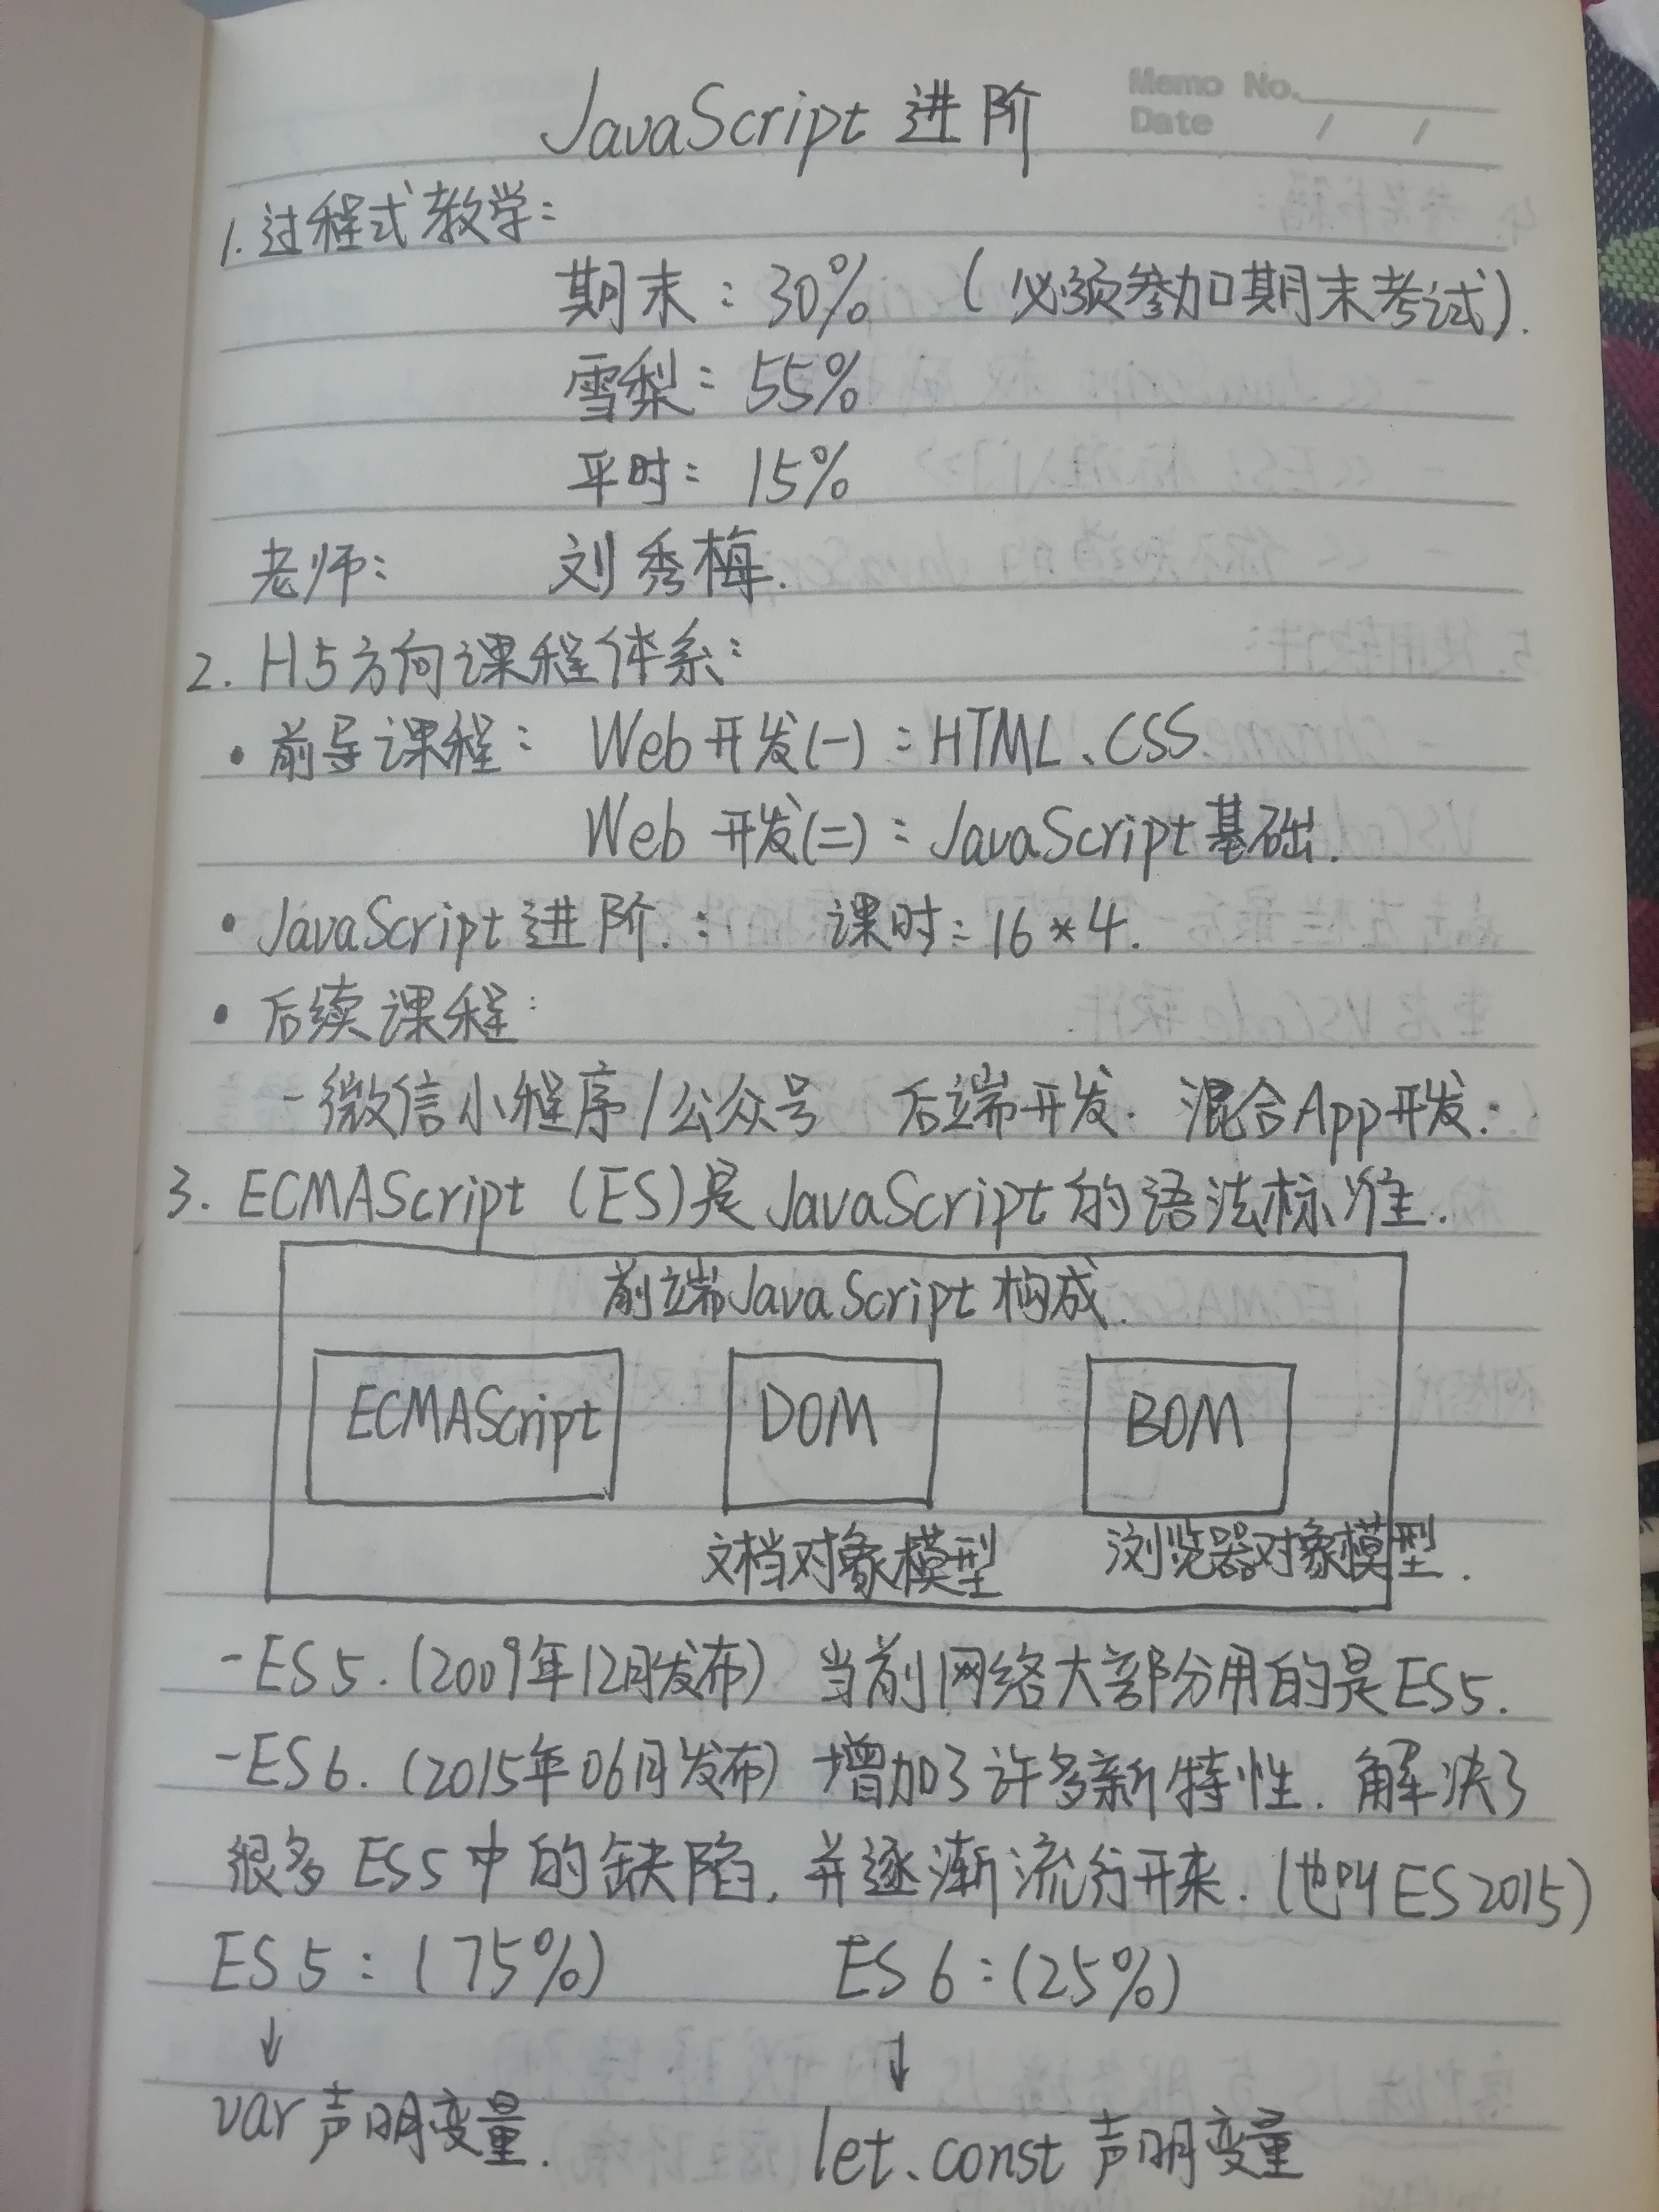 Memo No.
Date / /
JavaScript 进阶
1. 过程式教学:
期末: 30% (必须参加期末考试).
雪梨: 55%
平时: 15%
老师: 刘秀梅.
2. H5方向课程体系:
• 前导课程: Web开发(一): HTML、CSS
Web 开发(二): JavaScript基础.
• JavaScript进阶.: 课时: 16*4.
• 后续课程:
- 微信小程序/公众号 后端开发. 混合App开发.
3. ECMAScript (ES)是JavaScript的语法标准.
前端JavaScript构成.
ECMAScript DOM BOM
文档对象模型 浏览器对象模型.
- ES5. (2009年12月发布) 当前网络大部分用的是ES5.
- ES6. (2015年06月发布) 增加了许多新特性. 解决了
很多ES5中的缺陷, 并逐渐流行开来. (也叫ES2015)
ES5: (75%) ES6: (25%)
↓ ↓
var 声明变量. let、const 声明变量